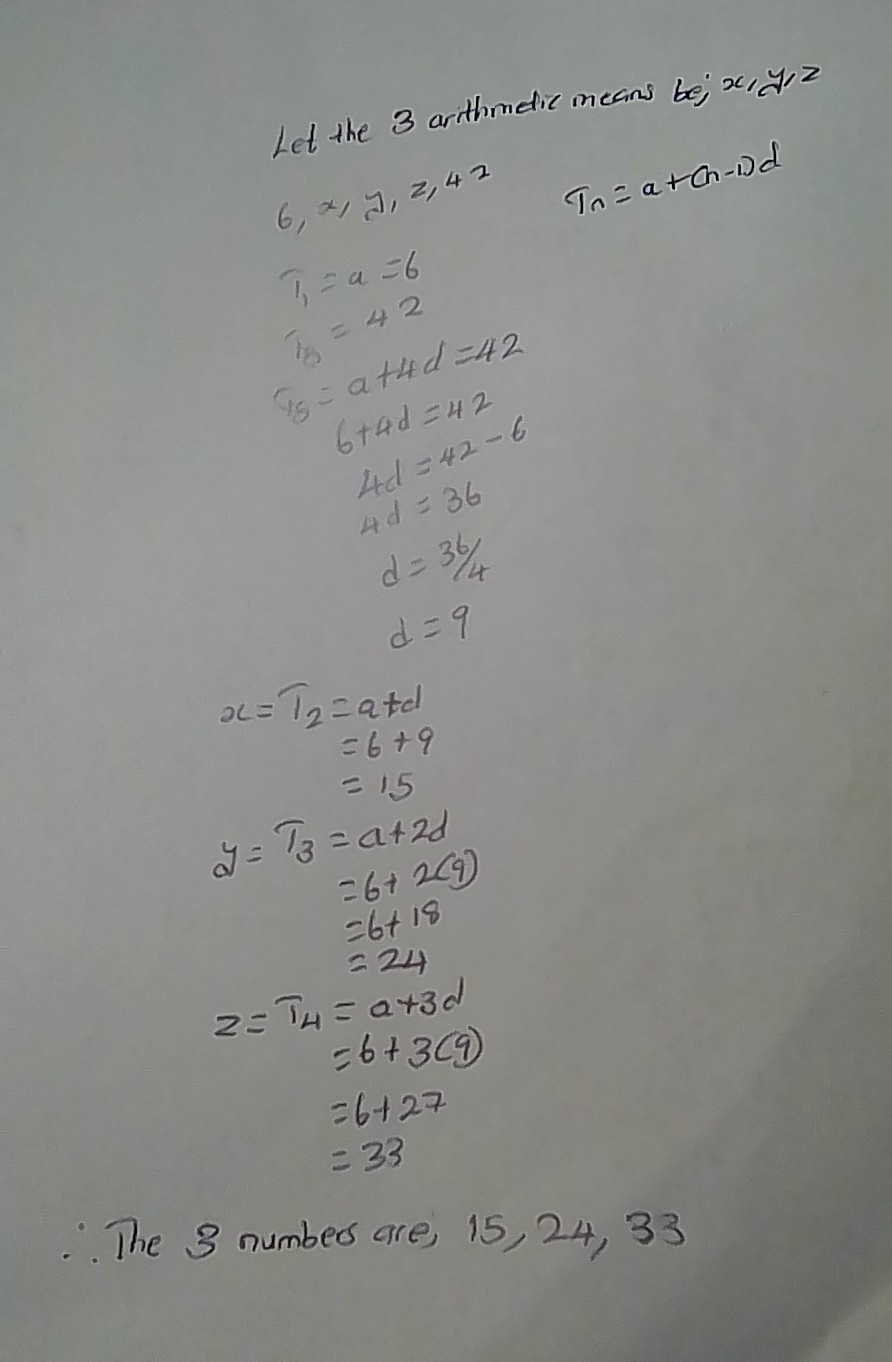 Let the 3 arithmetic means be; x, y, z
6, x, y, z, 42
Tn = a+(n-1)d
T1 = a = 6
T5 = 42
T5 = a+4d = 42
6+4d = 42
4d = 42-6
4d = 36
d = 36/4
d = 9
x = T2 = a+d
= 6+9
= 15
y = T3 = a+2d
= 6+2(9)
= 6+18
= 24
z = T4 = a+3d
= 6+3(9)
= 6+27
= 33
∴ The 3 numbers are, 15, 24, 33